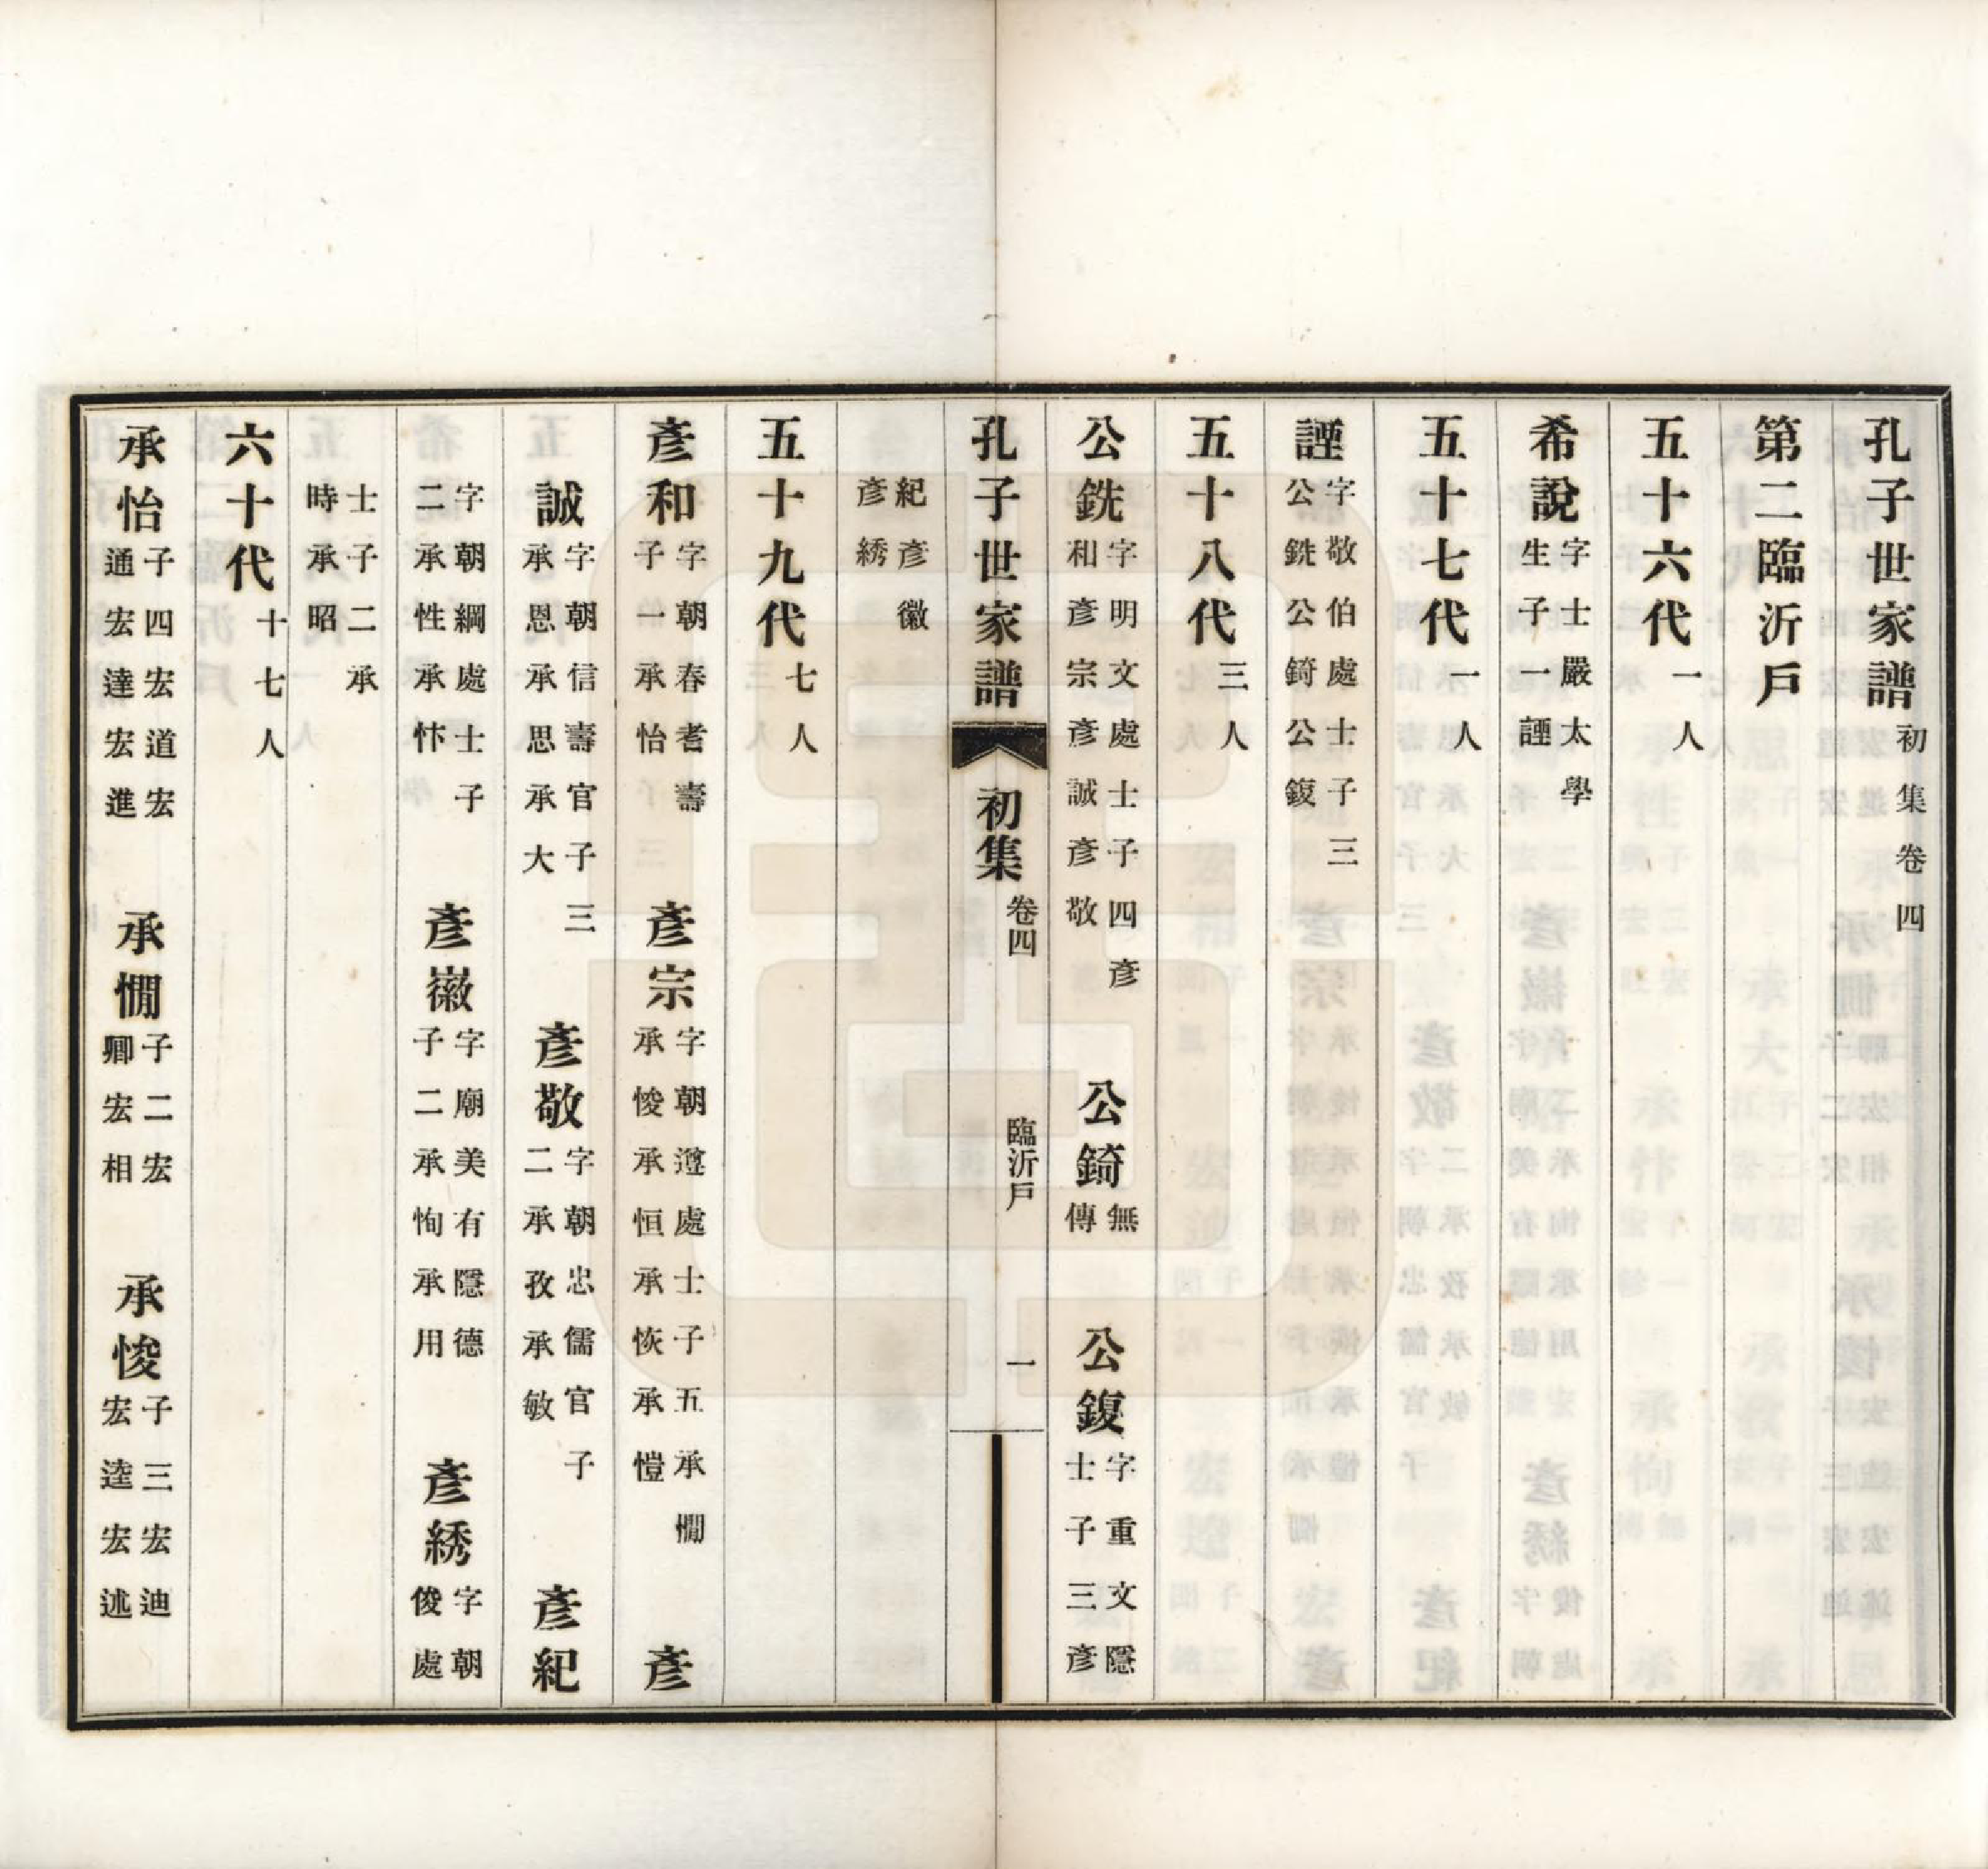 孔子世家譜初集卷四
第二臨沂戶
五十六代一人
希說字士嚴太學生子一諲
五十七代一人
諲字敬伯處士子三公銑公錡公鍑
五十八代三人
公銑字明文處士子四彥和彥宗彥誠彥敬 公錡無傳 公鍑字重文隱士子三彥
孔子世家譜 初集卷四 臨沂戶 一
紀彥徽彥綉
五十九代七人
彥和字朝春耆壽子一承怡 彥宗字朝遵處士子五承憪承悛承恒承恢承愷 彥
誠字朝信壽官子三承恩承思承大 彥敬字朝忠儒官子二承孜承敏 彥紀
字朝綱處士子二承性承忭 彥徽字廟美有隱德子二承恂承用 彥綉字朝俊處
士子二承時承昭
六十代十七人
承怡子四宏道宏通宏達宏進 承憪子二宏卿宏相 承悛子三宏迪宏逵宏述